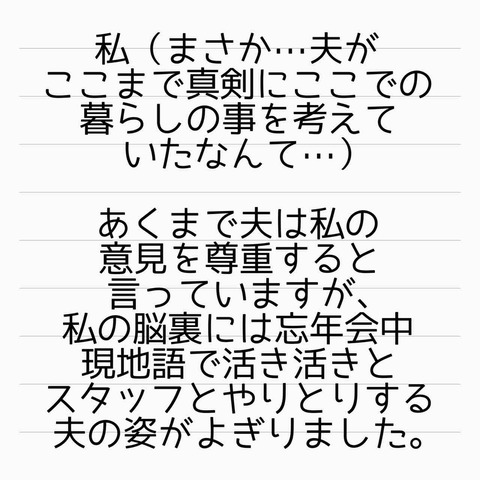 私（まさか…夫が
ここまで真剣にここでの
暮らしの事を考えて
いたなんて…）
あくまで夫は私の
意見を尊重すると
言っていますが、
私の脳裏には忘年会中
現地語で活き活きと
スタッフとやりとりする
夫の姿がよぎりました。